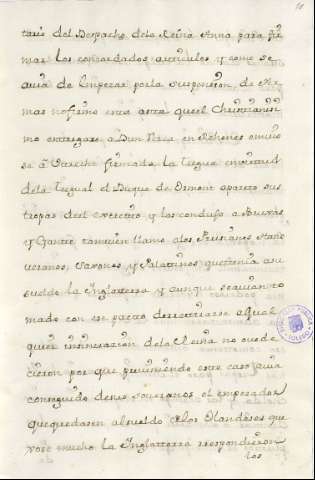 tario del Despacho dela Reina Anna para fir
mar los concordados articulos y como se
auia de empezar porla suspension, de Ar
mas no firmo esta asta queel Christianisi
mo entregase a Dun
se a Vtreche firmada la tregua en virtud
dela qual el Duque de Ormont aparto sus
tropas del exercito y las condujo a Bruxas,
y Gante tamuien llamo alos Prusianos Hano
ueranos, Saxones, y Palatinos quetenia asu
sueldo la Inglaterra y aunque
mado con ese pacto de a qual
quier insinuacion dela Reina no ouede
cieron por que preuiniendo este caso hauia
conseguido desus soueranos el emperador
quequedasen alsueldo delos Olandeses que
xose mucho la Inglatterra respondieron
los